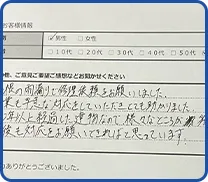 お客様情報
☑男性 □女性
□10代 □20代 □30代 □40代 □50代
ご意見ご要望ご感想などお聞かせください
様の雨漏りで修理依頼をお願いしました。
対応をしていただきとても助かりました。
年以上経過した建物なので様々なところが
後も対応をお願いできればと思っています。
ありがとうございました。